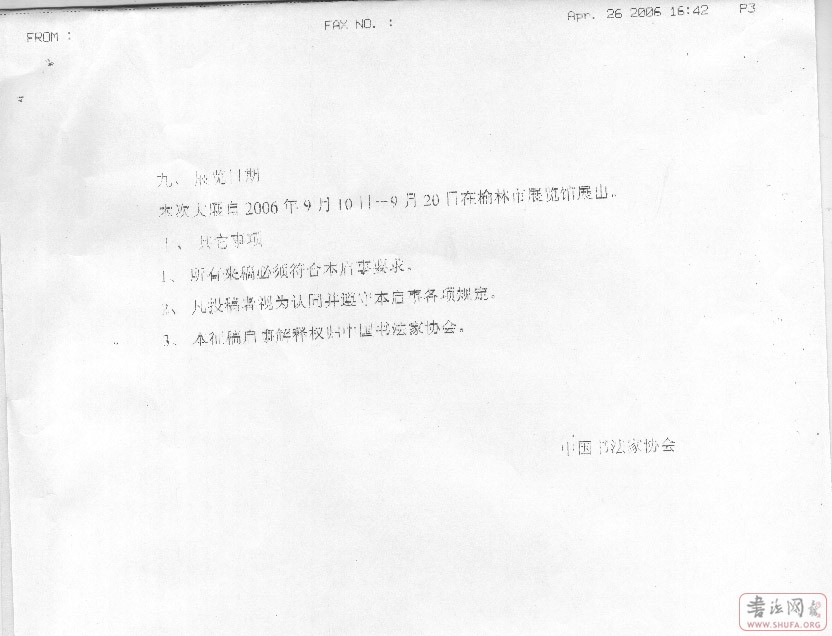 FROM :
FAX NO. :
Apr. 26 2006 16:42 P3
九、展览日期
本次大展自2006年9月10日--9月20日在榆林市展览馆展出。
十、其它事项
1、所有来稿必须符合本启事要求。
2、凡投稿者视为认同并遵守本启事各项规定。
3、本征稿启事解释权归中国书法家协会。
中国书法家协会
书法网
WWW.SHUFA.ORG